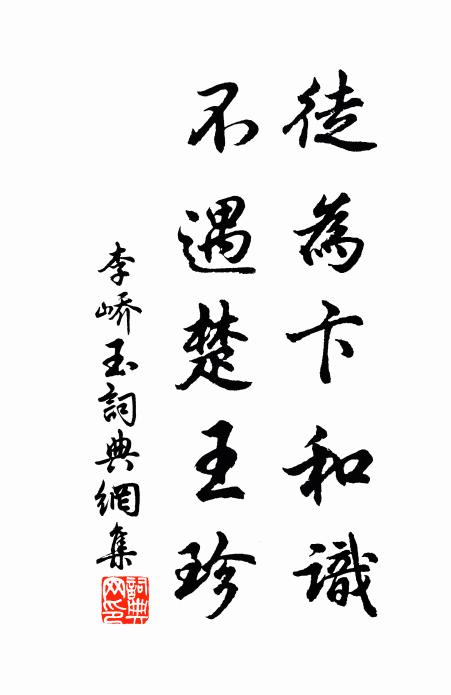 徒為卞和識
不遇楚王珍
李嶠玉詞典網集
詞典網印